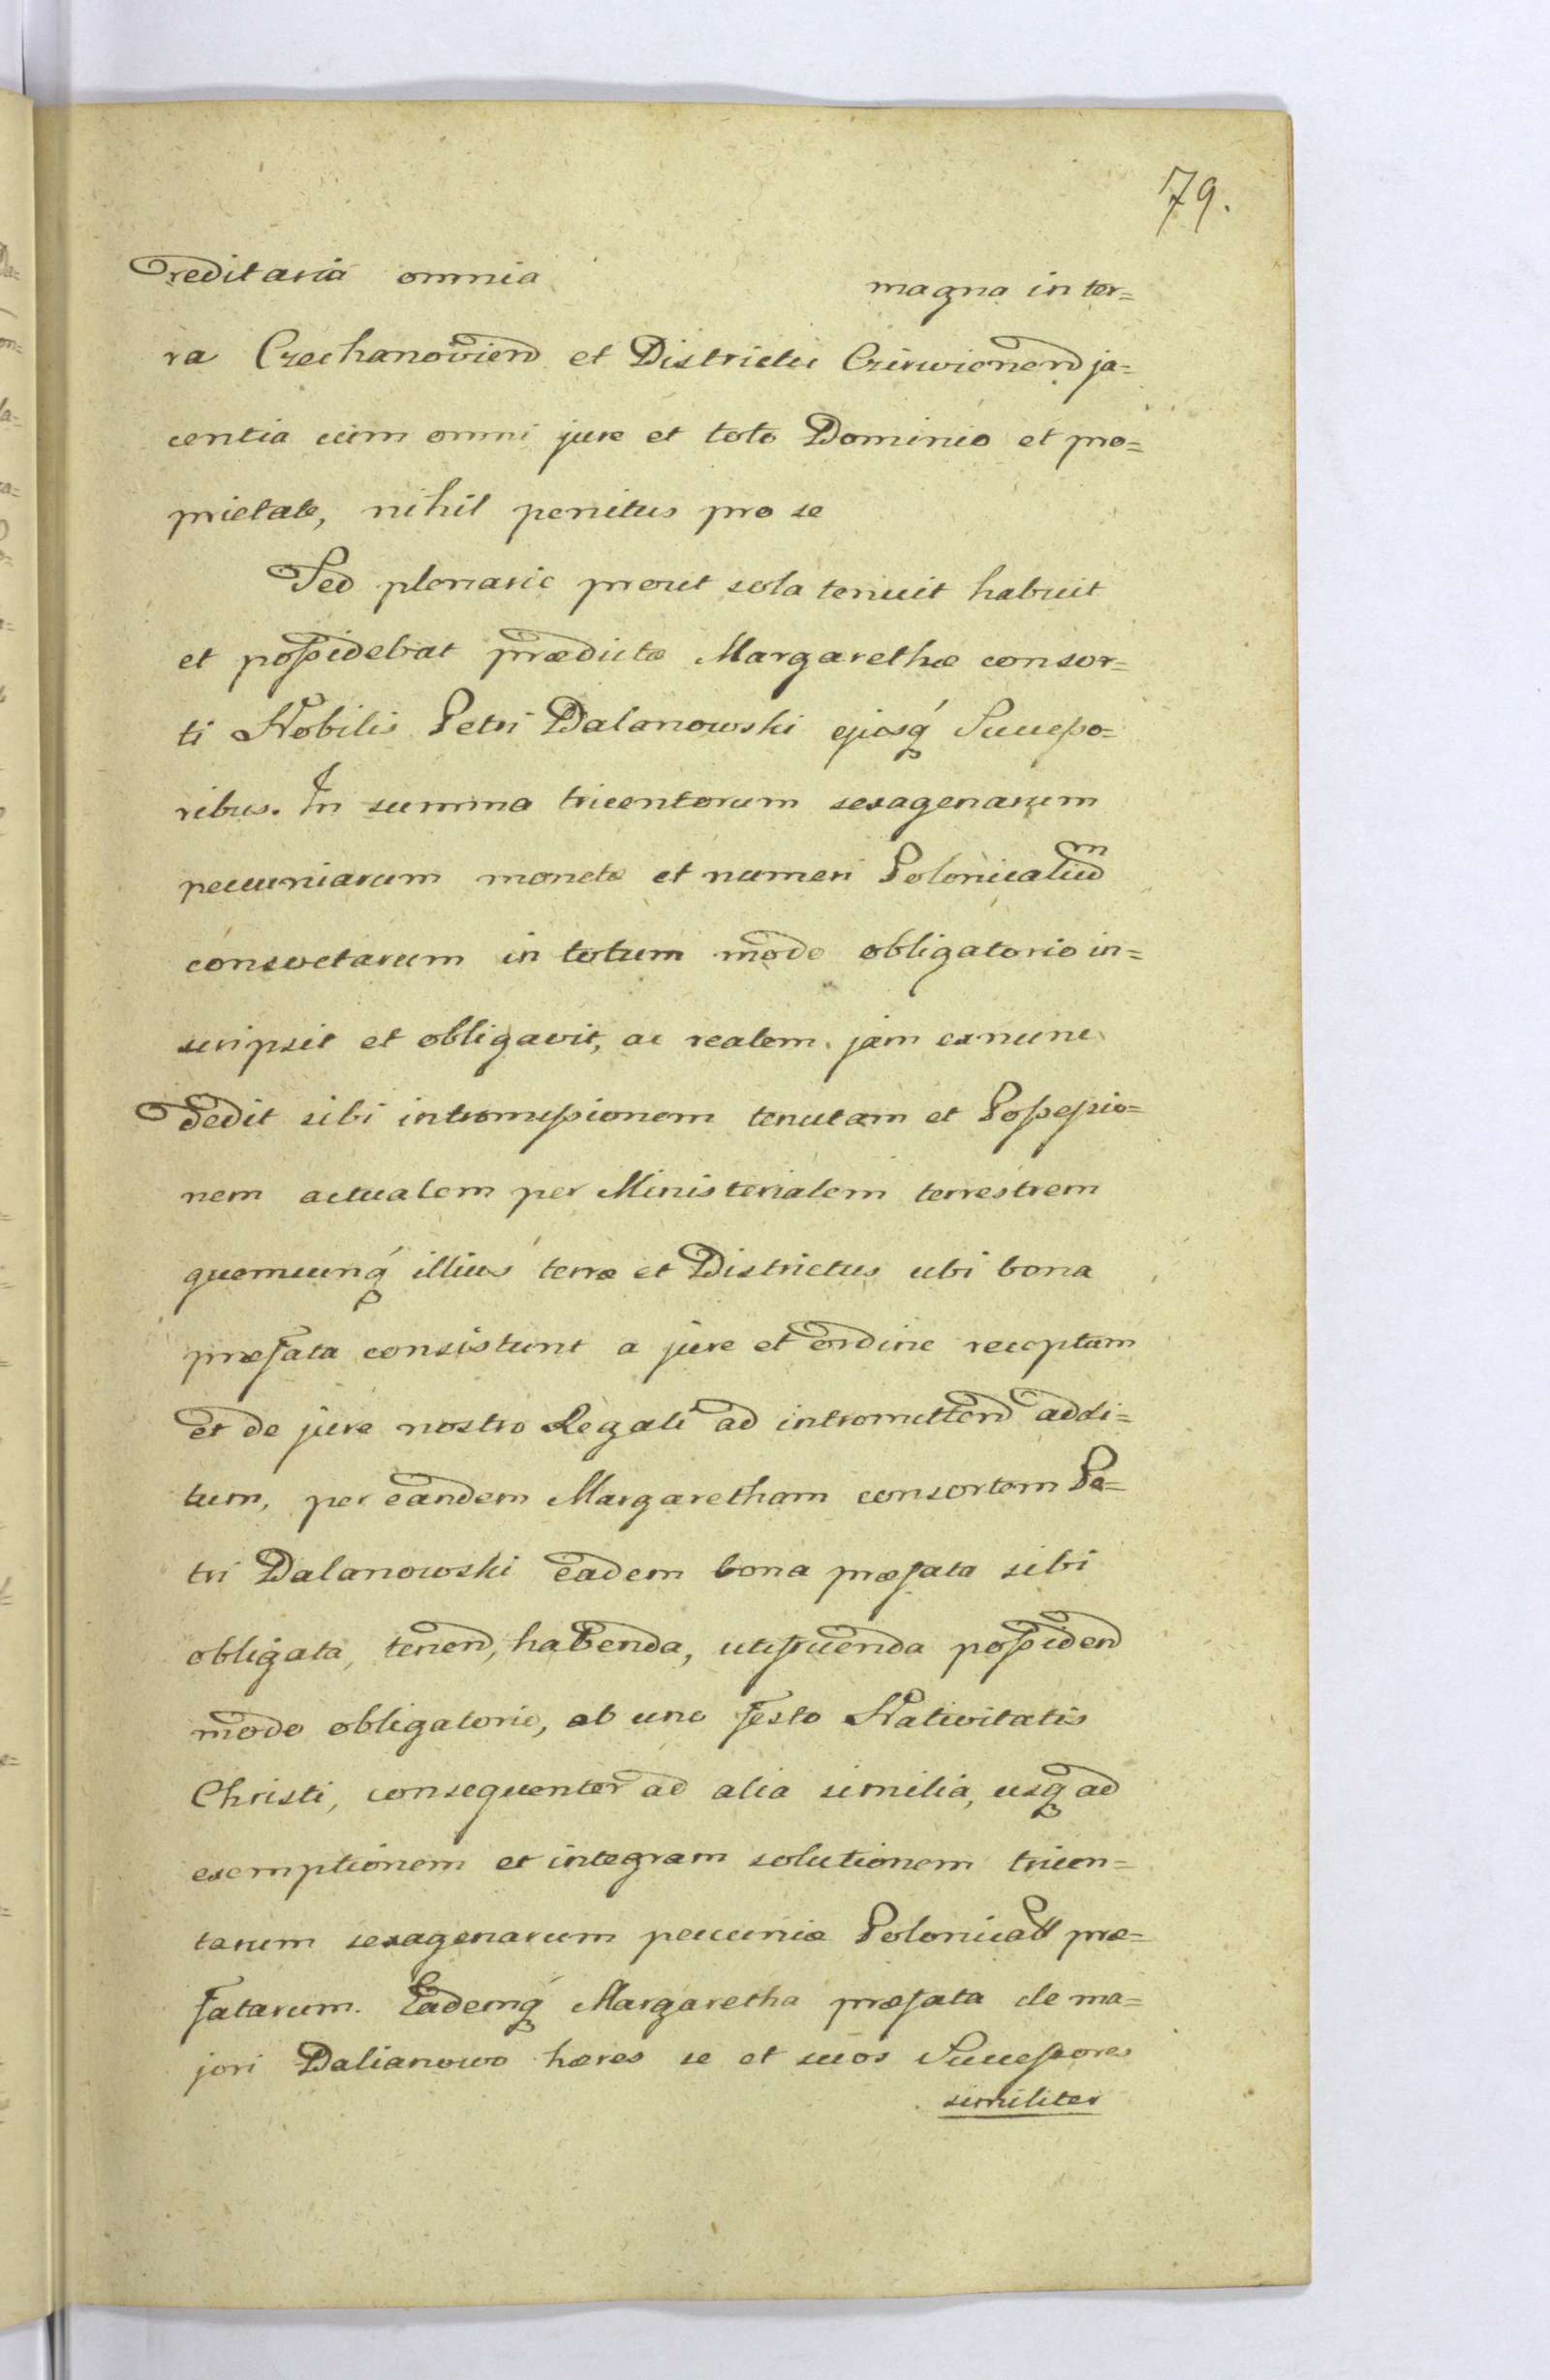 79.
reditaria omnia magna in ter=
ra Czechanovien̄ et Districtu Czirwionen̄ ja=
centia cum omni jure et toto Dominio et pro=
prietate, nihil penitus pro se
Sed plenarie prout sola tenuit habuit
et possidebat prædictæ Margarethæ consor=
ti Nobilis Petri Dalanowski ejusq́ Successo=
ribus. In summa tricentorum sexagenarum
pecuniarum monetæ et numeri Polonicaliu͞m
consvetarum in totum modo obligatorio in=
scripsit et obligavit, ac realem jam exnunc
dedit sibi intromissionem tenutam et Possessio=
nem actualem per Ministerialem terrestrem
quemcunq́ illius terræ et Districtus ubi bona
præfata consistunt a jure et ordine receptum
et de jure nostro Regali ad intromitten̄ addi=
tum, per eandem Margaretham consortem Pe=
tri Dalanowski eadem bona præfata sibi
obligata, tenen̄, habenda, utifruenda possiden̄
modo obligatorio, ab uno festo Nativitatis
Christi, consequenter ad alia similia, usq ad
exemptionem et integram solutionem tricen=
tarum sexagenarum pecuniæ Polonicall præ=
fatarum. Eademq́ Margaretha præfata de ma=
jori Dalianowo hæres se et suos Successores
similiter